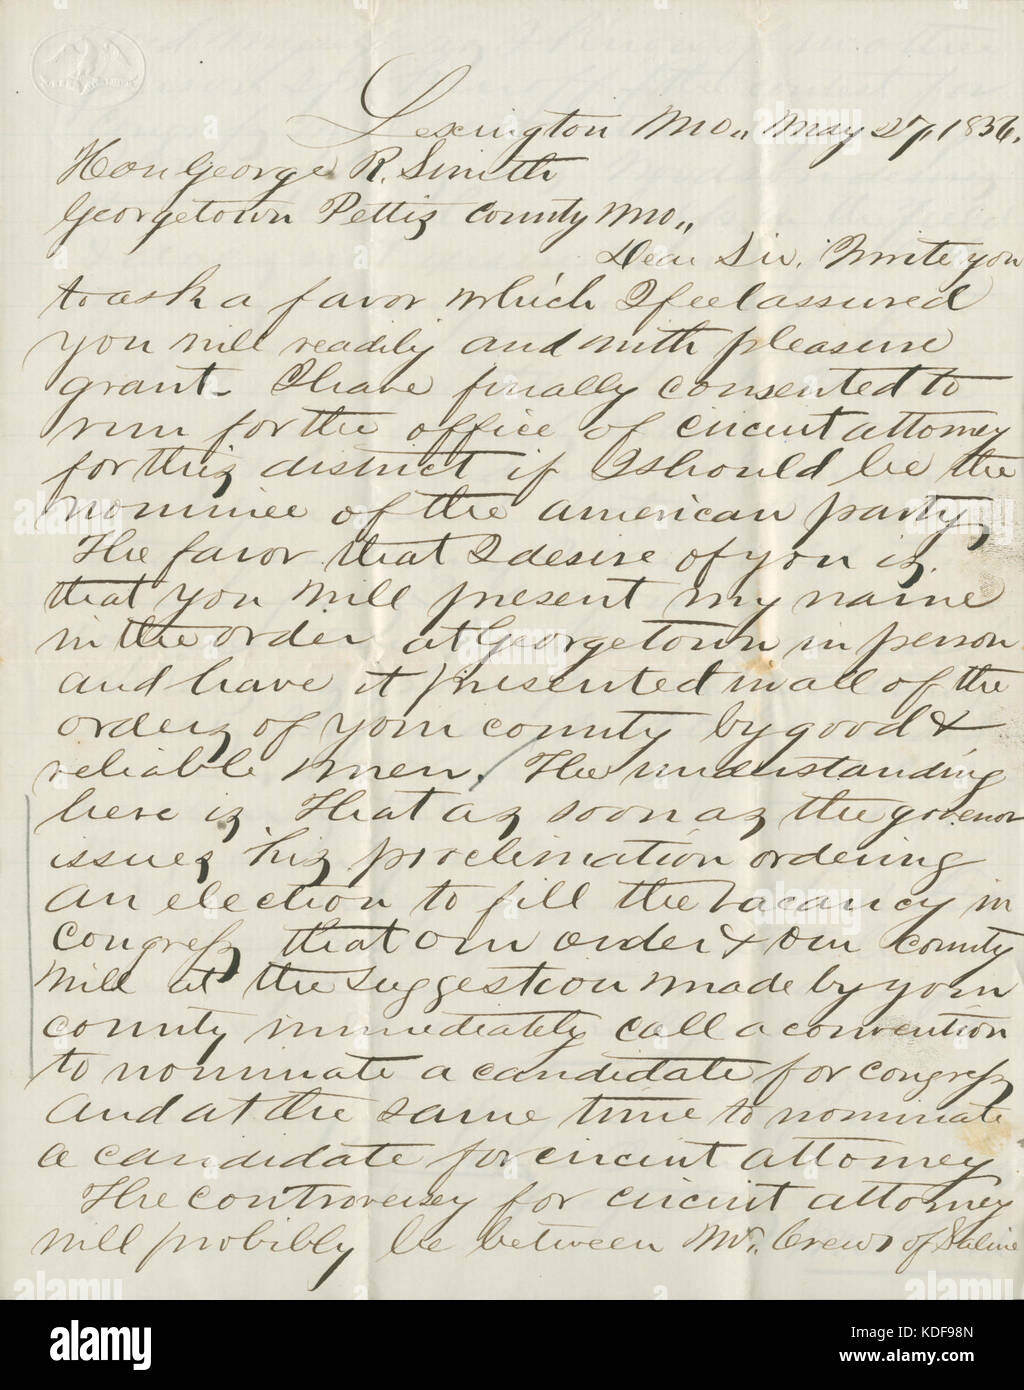 Lexington Mo,, May 27, 1856.
Hon George R. Smith
Georgetown Pettis County Mo,,
Dear Sir, I write you
to ask a favor which I feel assured
you will readily and with pleasure
grant. I have finally consented to
run for the office of circuit attorney
for this district if I should be the
nominee of the american party,
The favor that I desire of you is,
that you will present my name
in the order at Georgetown in person
and have it presented in all of the
orders of your county by good &
reliable men. The understanding
here is that as soon as the govenor
issues his proclimation ordering
an election to fill the vacancy in
Congress that our order & our county
will at the suggestion made by your
county immediately call a convention
to nominate a candidate for congress
and at the same time to nominate
a candidate for circuit attorney
The controversey for circuit attorney
will probibly be between Mr,, Crews of Saline
alamy
Image ID: KDF98N
www.alamy.com